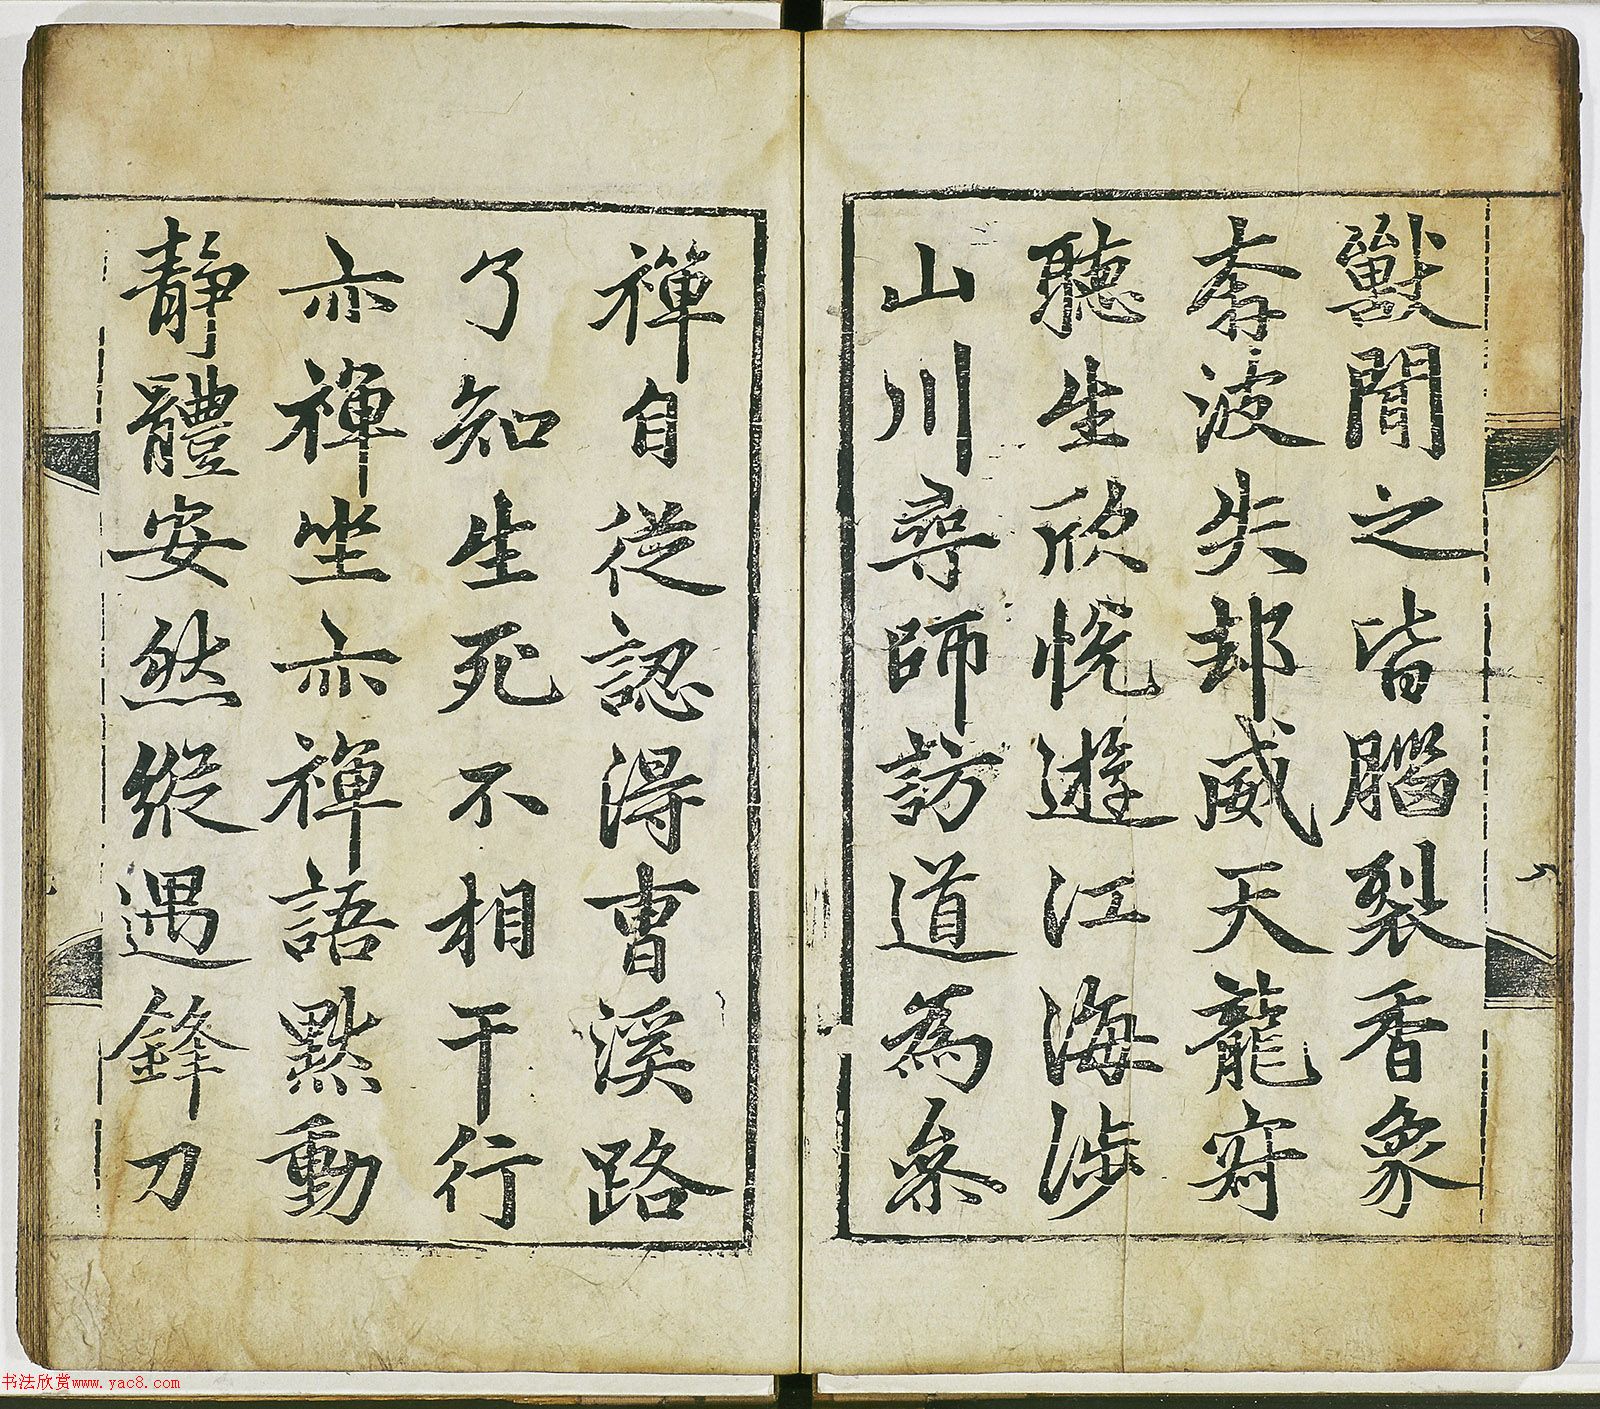 獸聞之皆腦裂香象
奔波失却威天龍寂
聽生欣悅遊江海涉
山川尋師訪道為參
禪自從認得曺溪路
了知生死不相干行
亦禪坐亦禪語默動
靜體安然縱遇鋒刀
书法欣赏www.yac8.com